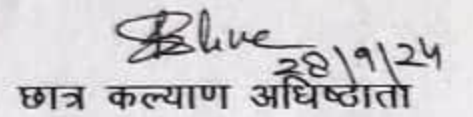 28/9/24
छात्र कल्याण अधिष्ठाता